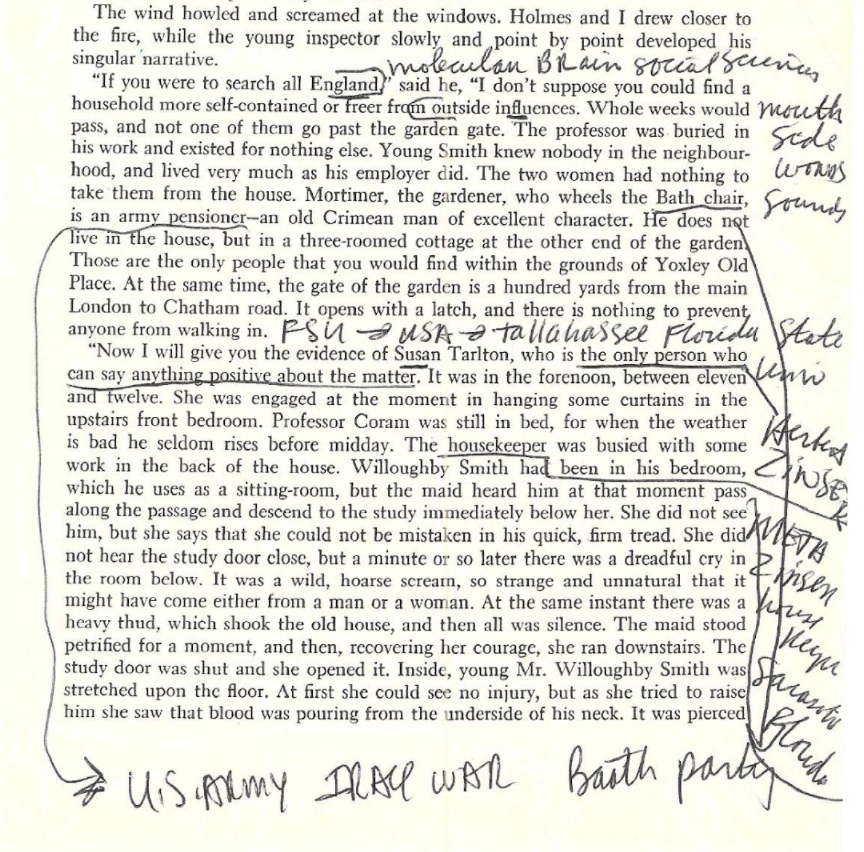 The wind howled and screamed at the windows. Holmes and I drew closer to
the fire, while the young inspector slowly and point by point developed his
singular narrative.
molecular BRain social sciences
“If you were to search all England,” said he, “I don’t suppose you could find a
household more self-contained or freer from outside influences. Whole weeks would
mouth
pass, and not one of them go past the garden gate. The professor was buried in
side
his work and existed for nothing else. Young Smith knew nobody in the neighbour-
words
hood, and lived very much as his employer did. The two women had nothing to
take them from the house. Mortimer, the gardener, who wheels the Bath chair,
sounds
is an army pensioner—an old Crimean man of excellent character. He does not
live in the house, but in a three-roomed cottage at the other end of the garden.
Those are the only people that you would find within the grounds of Yoxley Old
Place. At the same time, the gate of the garden is a hundred yards from the main
London to Chatham road. It opens with a latch, and there is nothing to prevent
anyone from walking in.
FSU → USA → tallahassee Florida State
Univ
“Now I will give you the evidence of Susan Tarlton, who is the only person who
can say anything positive about the matter. It was in the forenoon, between eleven
and twelve. She was engaged at the moment in hanging some curtains in the
upstairs front bedroom. Professor Coram was still in bed, for when the weather
is bad he seldom rises before midday. The housekeeper was busied with some
Herbert
work in the back of the house. Willoughby Smith had been in his bedroom,
ZINSER
which he uses as a sitting-room, but the maid heard him at that moment pass
along the passage and descend to the study immediately below her. She did not see
him, but she says that she could not be mistaken in his quick, firm tread. She did
META
not hear the study door close, but a minute or so later there was a dreadful cry in
Zinser
the room below. It was a wild, hoarse scream, so strange and unnatural that it
house
might have come either from a man or a woman. At the same instant there was a
heavy thud, which shook the old house, and then all was silence. The maid stood
petrified for a moment, and then, recovering her courage, she ran downstairs. The
study door was shut and she opened it. Inside, young Mr. Willoughby Smith was
stretched upon the floor. At first she could see no injury, but as she tried to raise
him she saw that blood was pouring from the underside of his neck. It was pierced
Florida
U.S. ARMY IRAQ WAR Baath party